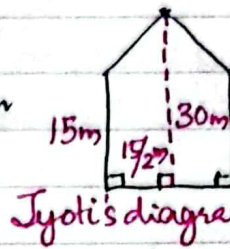 15m
30m
15/2m
Jyoti's diagra